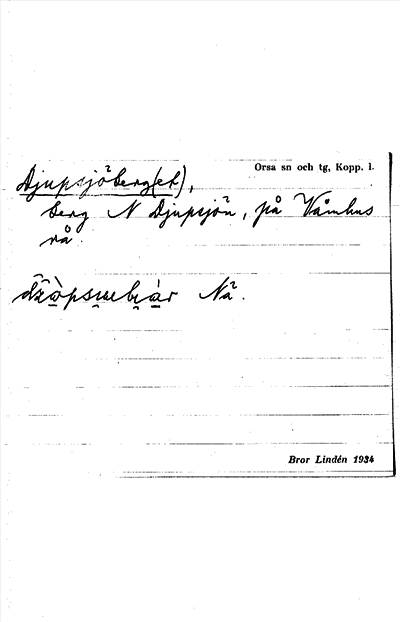 Orsa sn och tg, Kopp. l.
Djupsjöberg(et),
berg N Djupsjön, på Våmhus
rå.
Nä.
Bror Lindén 1934